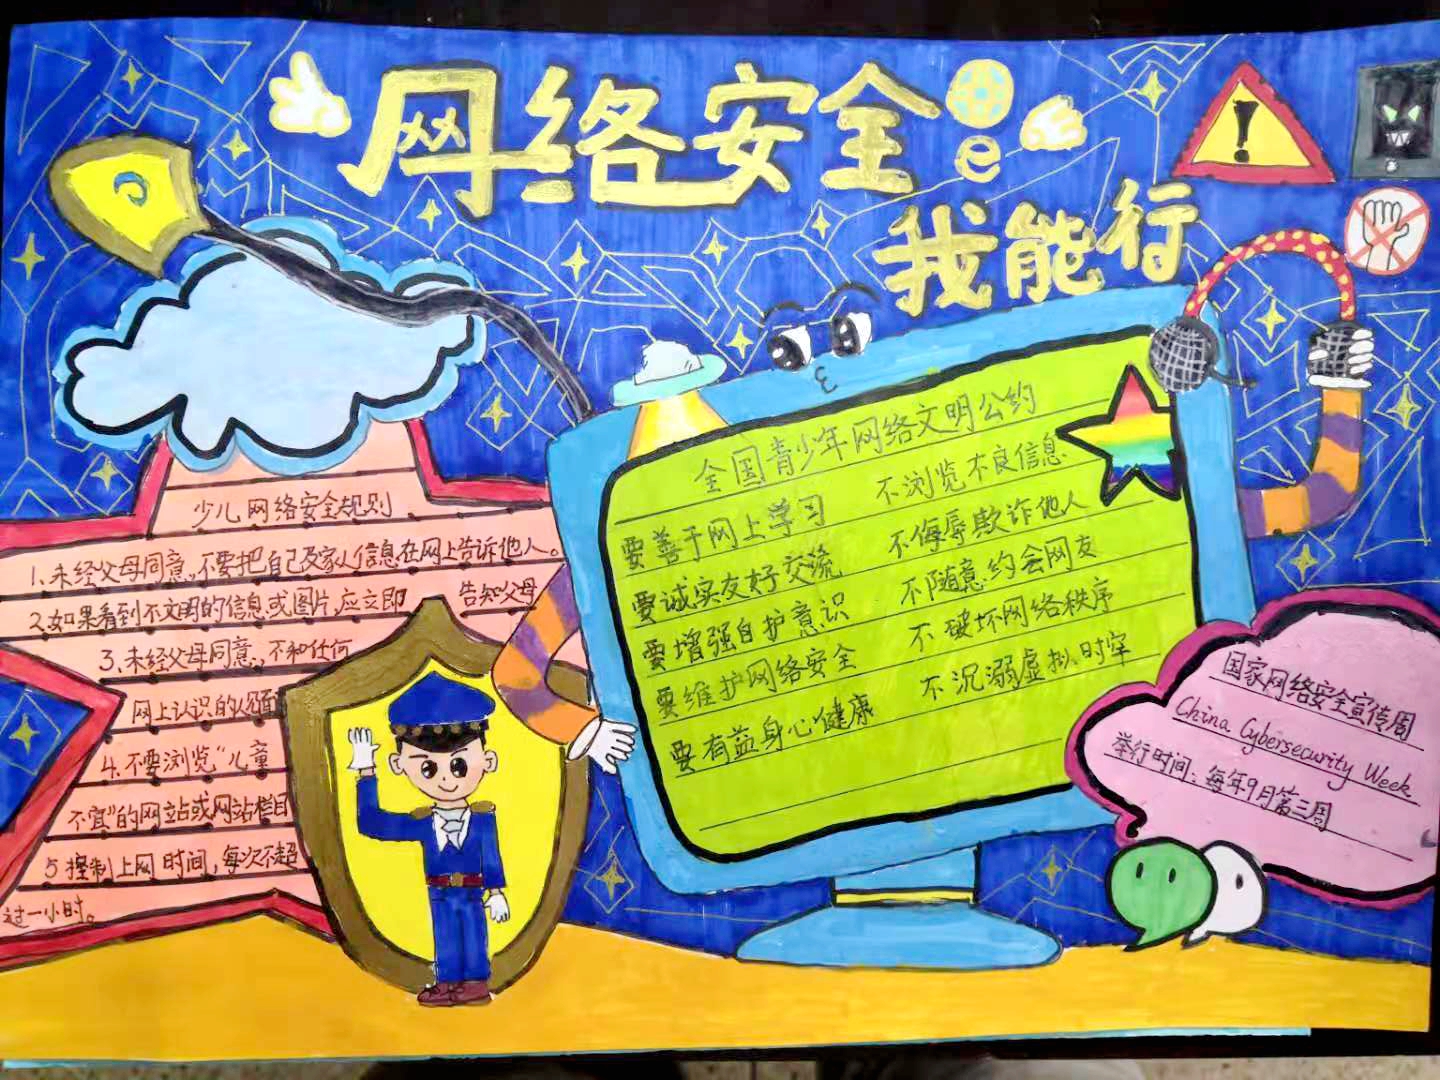 网络安全e
我能行
少儿网络安全规则
1、未经父母同意,不要把自己及家人信息在网上告诉他人。
2如果看到不文明的信息或图片,应立即 告知父母
3、未经父母同意,不和任何
网上认识的人见面
4、不要浏览“儿童
不宜”的网站或网站栏目
5控制上网时间,每次不超
过一小时。
全国青少年网络文明公约
要善于网上学习 不浏览不良信息
要诚实友好交流 不侮辱欺诈他人
要增强自护意识 不随意约会网友
要维护网络安全 不破坏网络秩序
要有益身心健康 不沉溺虚拟时空
国家网络安全宣传周
China Cybersecurity Week
举行时间:每年9月第三周